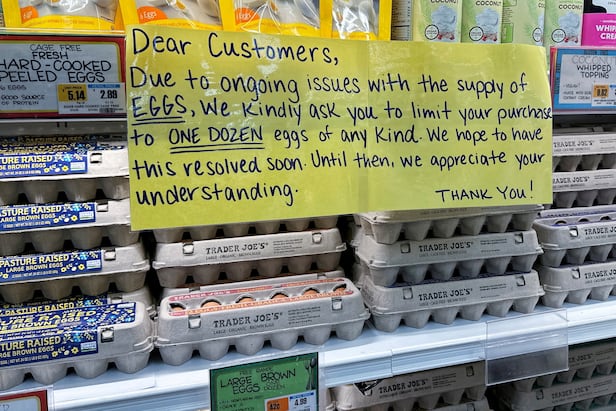 Eggs
COCONUT
COCONUT
WHIP
CREA
CAGE FREE
FRESH
HARD-COOKED
PEELED EGGS
6 EGGS
GOOD SOURCE
OF PROTEIN
5.14
2.99
Dear Customers,
Due to ongoing issues with the supply of
EGGS, We Kindly ask you to limit your purchase
to ONE DOZEN eggs of any kind. We hope to have
this resolved soon. Until then, we appreciate your
understanding.
THANK YOU!
COCONUT
WHIPPED
TOPPING
TURE RAISED
LARGE BROWN EGGS
PASTURE RAISED
LARGE BROWN EGGS
PASTURE RAISED
LARGE BROWN EGGS
PASTURE RAISED
LARGE BROWN EGGS
TRADER JOE'S
TRADER JOE'S
TRADER JOE'S
TRADER JOE'S
TRADER JOE'S
TRADER JOE'S
TRADER JOE'S
TRADER JOE'S
TRADER JOE'S
LARGE BROWN
EGGS
DOZEN
4.99
TRADER JOE'S
TRADER JOE'S